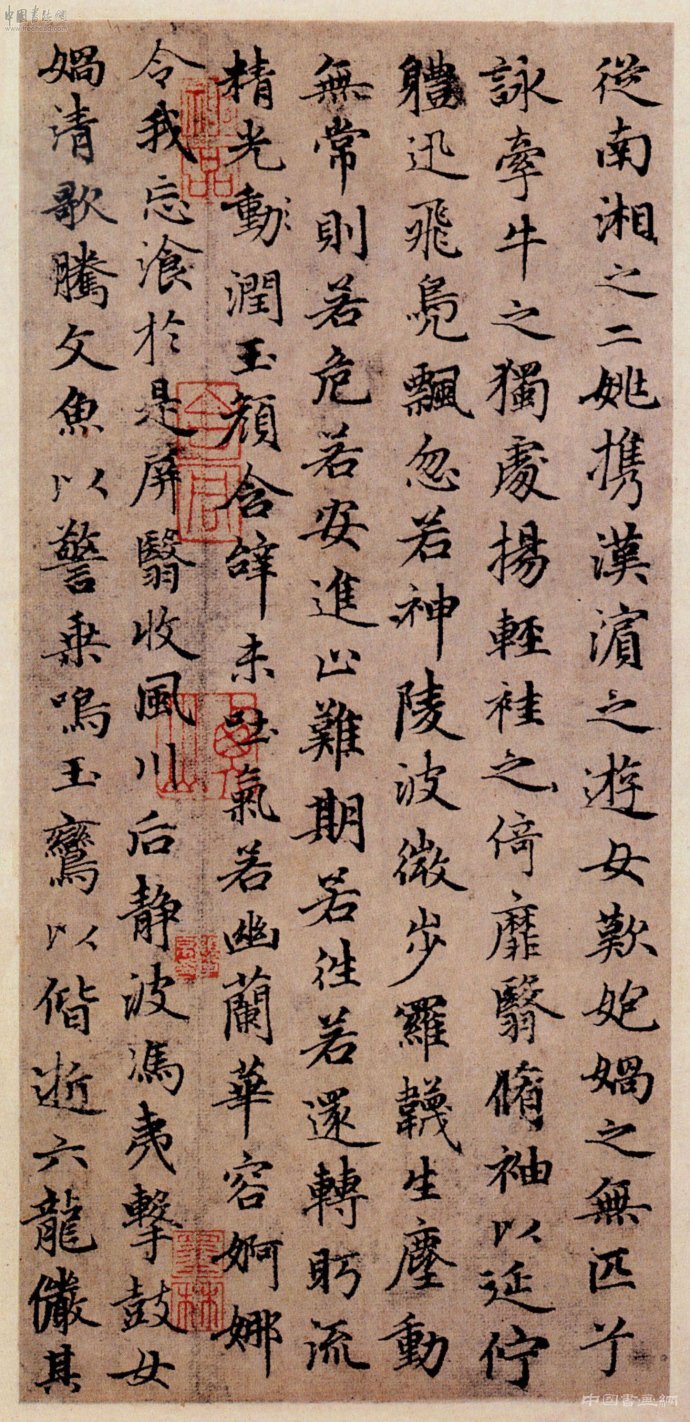 中國書法網
從南湘之二姚攜漢濱之遊女歎媧之無匹兮
詠牽牛之獨處揚輕袿之倚靡翳脩袖以延佇
軆迅飛鳧飄忽若神陵波微步羅韈生塵動
無常則若危若安進止難期若往若還轉眄流
精光動潤玉顏含辭未吐氣若幽蘭華容婀娜
令我忘飡於是屏翳收風川后静波馮夷擊鼓女
媧清歌騰文魚以警乘鳴玉鸞以偕逝六龍儼其
中國書畫網